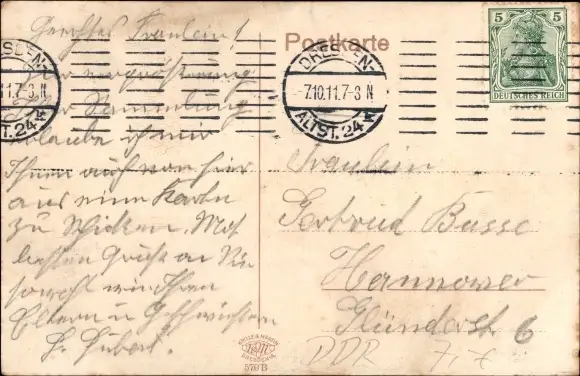 Geehrtes Fräulein!
Zur vergrösserung
Ihrer Sammlung
erlaube ich mir
Ihnen auch von hier
aus eine Karte
zu schicken. Mit
besten Gruß an Sie
sowohl wie Ihren
Eltern u Geschwistern
H. Hubert.
Postkarte
DRESDEN-
-7.10.11.7-8 N
ALTST. 24 k
DRESDEN-
11.7-8 N
ST. 24 k
5 5
DEUTSCHES REICH
Fräulein
Gertrud Busse
Hannover
Gründerstr. 6
DDR 7,-
579 B